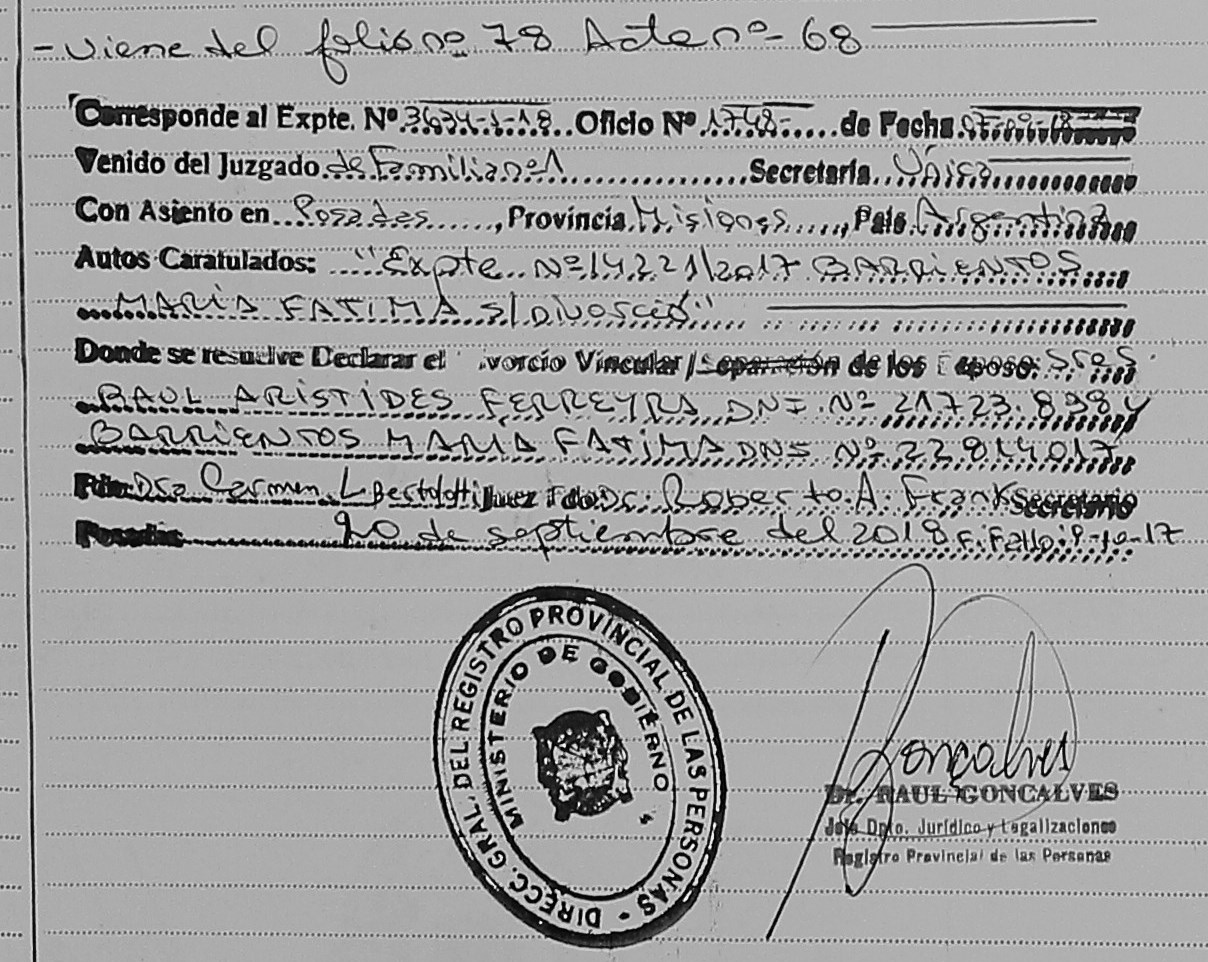 - Viene del folio nº 78 Acta nº 68
Corresponde al Expte. Nº 3634-J-18 Oficio Nº 1748- de Fecha 07-09-18
Venido del Juzgado de Familia nº1 Secretaría Única
Con Asiento en Posadas, Provincia Misiones, País Argentina
Autos Caratulados: "Expte Nº 14221/2017 BARRIENTOS
MARÍA FATIMA S/ Divorcio"
Donde se resuelve Declarar el vorcio Vincular / Separación de los Esposo: Sres.
RAUL ARISTIDES FERREYRA DNI Nº 21.723.898 y
BARRIENTOS MARÍA FATIMA DNI Nº 22814017
Fdo: Dra Carmen L Bertolotti Juez Fdo: Dr. Roberto A. Frank Secretario
Posadas 20 de septiembre del 2018 F. Fallo: 9-10-17
DIRECC. GRAL. DEL REGISTRO PROVINCIAL DE LAS PERSONAS -
MINISTERIO DE GOBIERNO
Gonçalves
Dr. RAUL GONCALVES
Jefe Dpto. Jurídico y Legalizaciones
Registro Provincial de las Personas